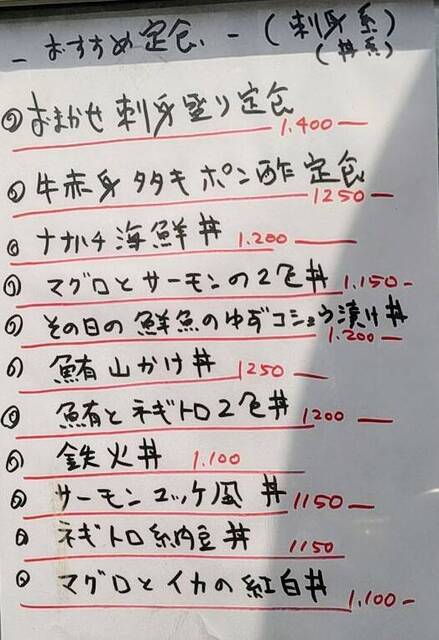 - おすすめ定食 - (刺身系)
(丼系)
おまかせ刺身盛り定食 1.400 —
牛赤身タタキポン酢定食 1250 —
ナナハチ海鮮丼 1.200 —
マグロとサーモンの2色丼 1.150 -
その日の鮮魚のゆずコショウ漬け丼 1.200 —
鮪山かけ丼 1250 —
鮪とネギトロ2色丼 1200 —
鉄火丼 1.100
サーモンユッケ風丼 1150 —
ネギトロ納豆丼 1150
マグロとイカの紅白丼 1,100 -